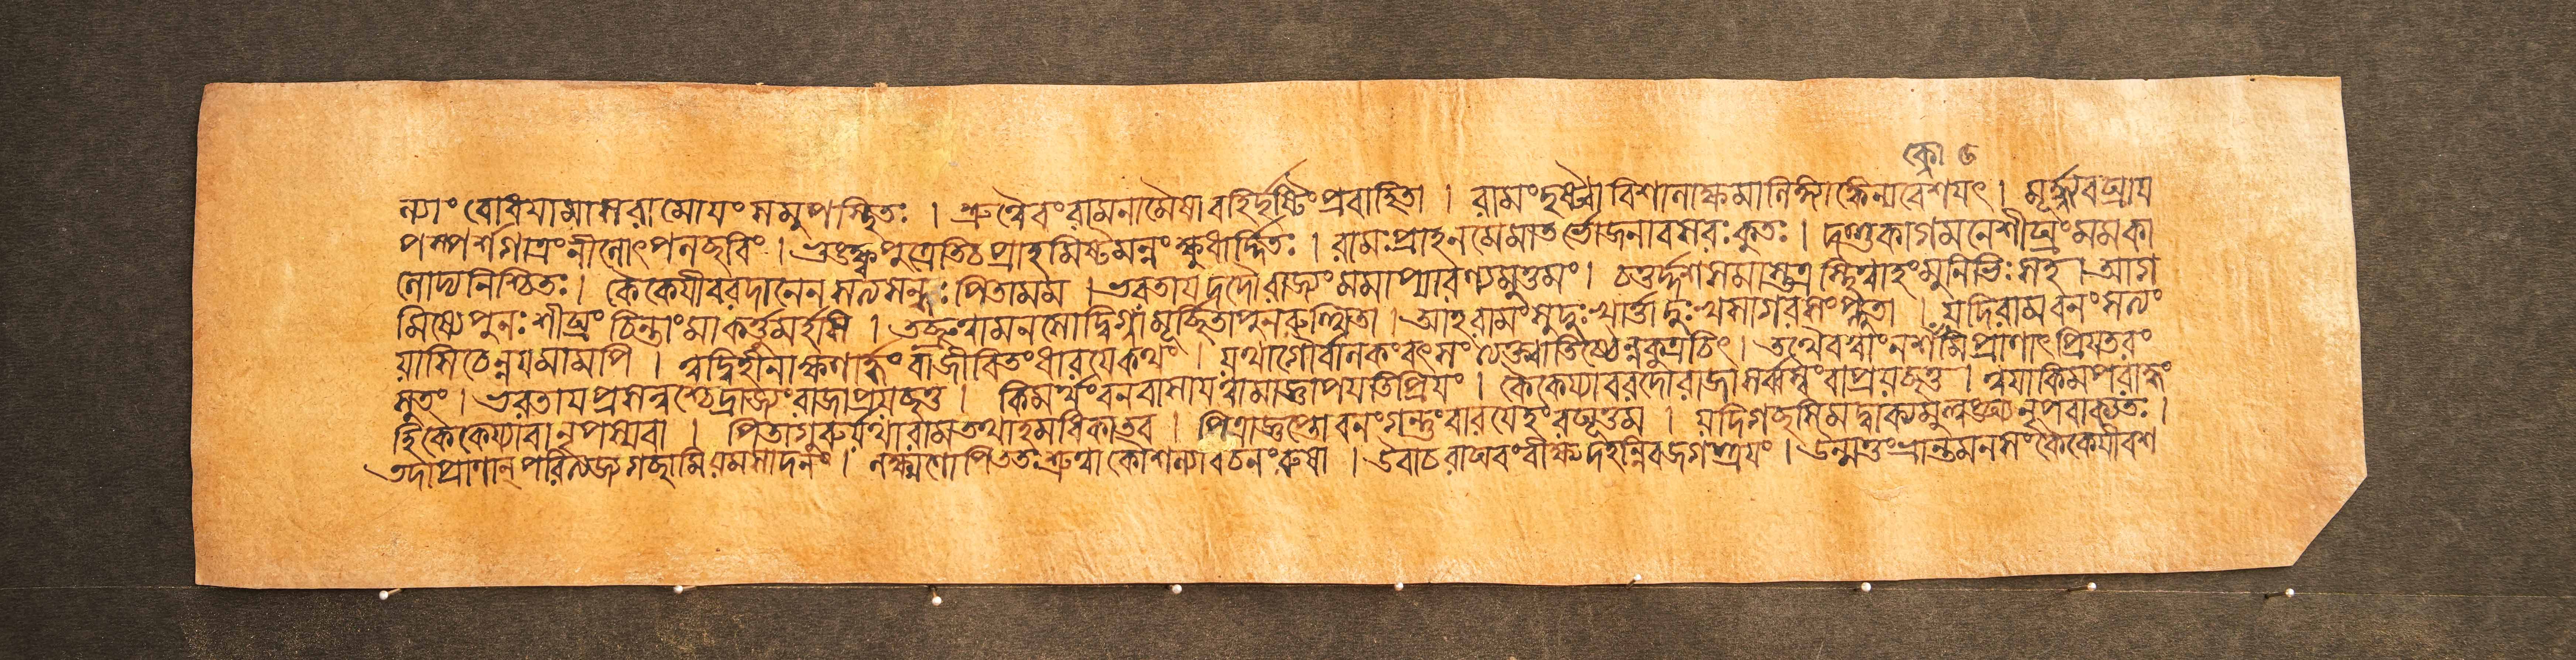 কৌ ৫
ল্যাং বোধয়ামাস রামোয়ং সমুপস্থিতঃ । শ্রুত্বৈবং রামনামৈষা বহির্দৃষ্টিং প্রবাহিতা । রামং দৃষ্ট্বা বিশালাক্ষমালিঙ্গ্যাঙ্কেন্যবেশয়ৎ । মূর্দ্ধ্ন্যবঘ্রায়
পস্পর্শ গাত্রং নীলোৎপলছবিং । ভুংক্ষ্ব পুত্রেতি চ প্রাহ মিষ্টমন্নং ক্ষুধার্দ্দিতঃ । রামঃ প্রাহ ন মে মাতর্ভোজনাবসরঃ কুতঃ । দণ্ডকাগমনে শীঘ্রং মম কা
লোদ্য নিশ্চিতঃ । কৈকেয়ীবরদানেন সত্যসন্ধঃ পিতা মম । ভরতায় দদৌ রাজ্যং মমাপ্যারণ্যমুত্তমং । চতুর্দ্দশ সমাস্তত্র স্থিত্বাহং মুনিভিঃ সহ । আগ
মিষ্যে পুনঃ শীঘ্রং চিন্তাং মা কর্ত্তুমর্হসি । তচ্ছ্রুত্বা মনসোদ্বিগ্না মূর্চ্ছিতা পুনরুত্থিতা । আহ রামং সুদুঃখার্ত্তা দুঃখসাগরসংপ্লুতা । যদি রাম বনং সত্যং
য়াসি চেন্নয় মামপি । ত্বদ্বিহীনা ক্ষণার্দ্ধং বা জীবিতং ধারয়ে কথং । যথা গৌর্বালকং বৎসং ত্যক্ত্বা তিষ্ঠেন্ন কুত্রচিৎ । তথৈব ত্বাং ন শক্নোমি প্রাণাৎ প্রিয়তরং
সুতং । ভরতায় প্রসন্নশ্চেদ্রাজ্যং রাজা প্রয়চ্ছতু । কিমর্থং বনবাসায় ত্বামাজ্ঞাপয়তি প্রিয়ং । কৈকেয়্যা বরদো রাজা সর্ব্বস্বং বা প্রয়চ্ছতু । ত্বয়া কিমপরাদ্ধং
হি কৈকেয়্যা বা নৃপস্য বা । পিতা গুরুর্যথা রাম তথাহমধিকা তব । পিত্রাজ্ঞপ্তো বনং গন্তুং বারয়েহং রঘূত্তম । যদি গচ্ছসি মদ্বাক্যমুল্লঙ্ঘ্য নৃপবাক্যতঃ ।
তদা প্রাণান্ পরিত্যজ্য গচ্ছামি যমসাদনং । লক্ষ্মণোপি ততঃ শ্রুত্বা কৌশল্যাবচনং রুষা । উবাচ রাঘবং বীক্ষ্য দহন্নিব জগত্ত্রয়ং । উন্মত্তং ভ্রান্তমনসং কৈকেয়ীবশ